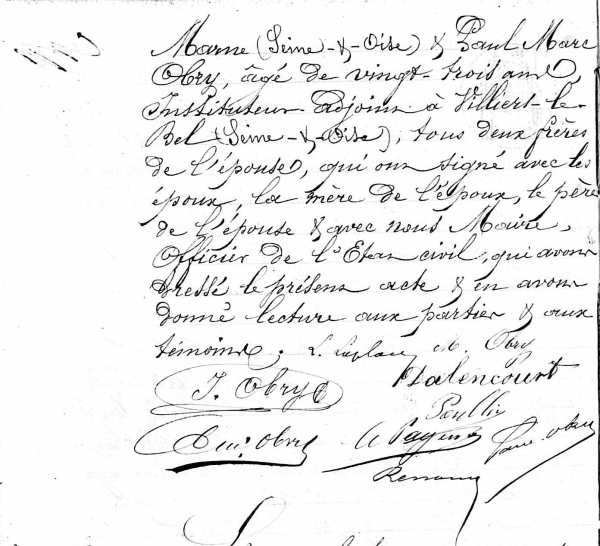 Marne (Seine-&-Oise) & Paul Marc
Obry, âgé de vingt-trois ans,
Instituteur-adjoint à Villiers-le-
Bel (Seine-&-Oise), tous deux frères
de l'épouse, qui ont signé avec les
époux, la mère de l'époux, le père
de l'épouse & avec nous Maire,
Officier de l'Etat civil, qui avons
dressé le présent acte & en avons
donné lecture aux parties & aux
témoins.
M. Obry
J. Obry
Obry